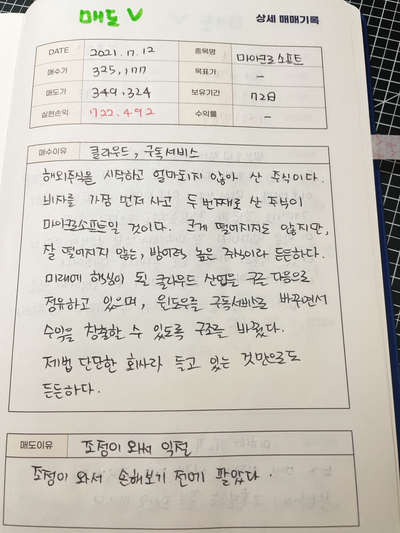 매도 V
상세 매매기록
DATE 2021.7.12 종목명 마이크로소프트
매수가 325,177 목표가 -
매도가 349,324 보유기간 72일
실현손익 722.492 수익률 -
매수이유 클라우드, 구독서비스
해외주식을 시작하고 얼마되지 않아 산 주식이다.
비자를 가장 먼저 사고 두번째로 산 주식이
마이크로소프트일 것이다. 크게 떨어지지도 않지만,
잘 떨어지지 않는, 방어력 높은 주식이라 든든하다.
미래에 핵심이 될 클라우드 산업을 구글 다음으로
점유하고 있으며, 윈도우를 구독서비스로 바꾸면서
수익을 창출할 수 있도록 구조를 바꿨다.
제법 단단한 회사라 들고 있는 것만으로도
든든하다.
매도이유 조정이 와서 익절
조정이 와서 손해보기 전에 팔았다.